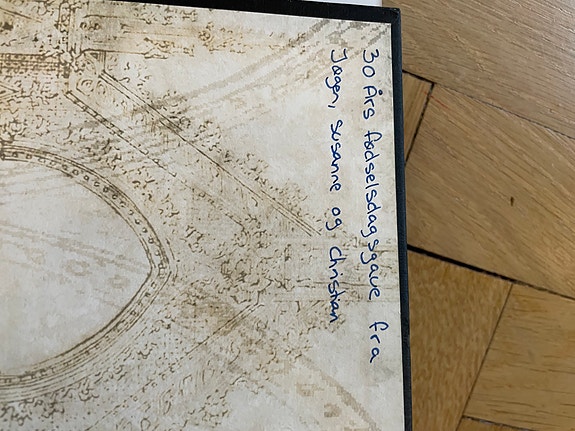 30 Års fødselsdagsgave fra
Jøgen, Susanne og Christian